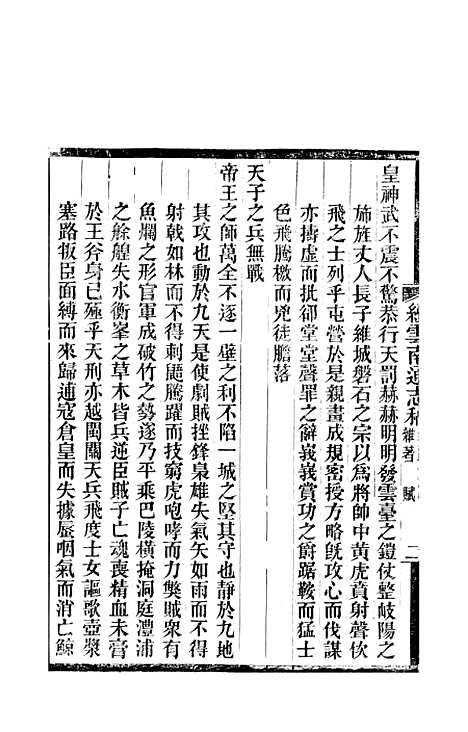 續雲南通志稿 雜著 賦 二
皇神武不震不驚恭行天罰赫赫明明發雲臺之鎧仗整岐陽之
旆旌丈人長子維城磐石之宗以爲將帥中黃虎賁射聲佽
飛之士列乎屯營於是親畫成規密授方略旣攻心而伐謀
亦擣虛而扺卻堂堂聲罪之辭峩峩賞功之爵踞鞍而猛士
色飛騰檄而兇徒膽落
天子之兵無戰
帝王之師萬全不逐一壁之利不陷一城之堅其守也靜於九地
其攻也動於九天是使劇賊挫鋒梟雄失氣矢如雨而不得
射戟如林而不得刺鼯騰躍而技窮虎咆哮而力獘賊衆有
魚爛之形官軍成破竹之勢遂乃平乘巴陵橫掩洞庭澧浦
之餘艎失水衡峯之草木皆兵逆臣賊子亡魂喪精血未膏
於王斧身已殛乎天刑亦越閩關天兵飛度士女謳歌壺漿
塞路叛臣面縛而來歸逋寇倉皇而失據扆咽氣而消亡鯨